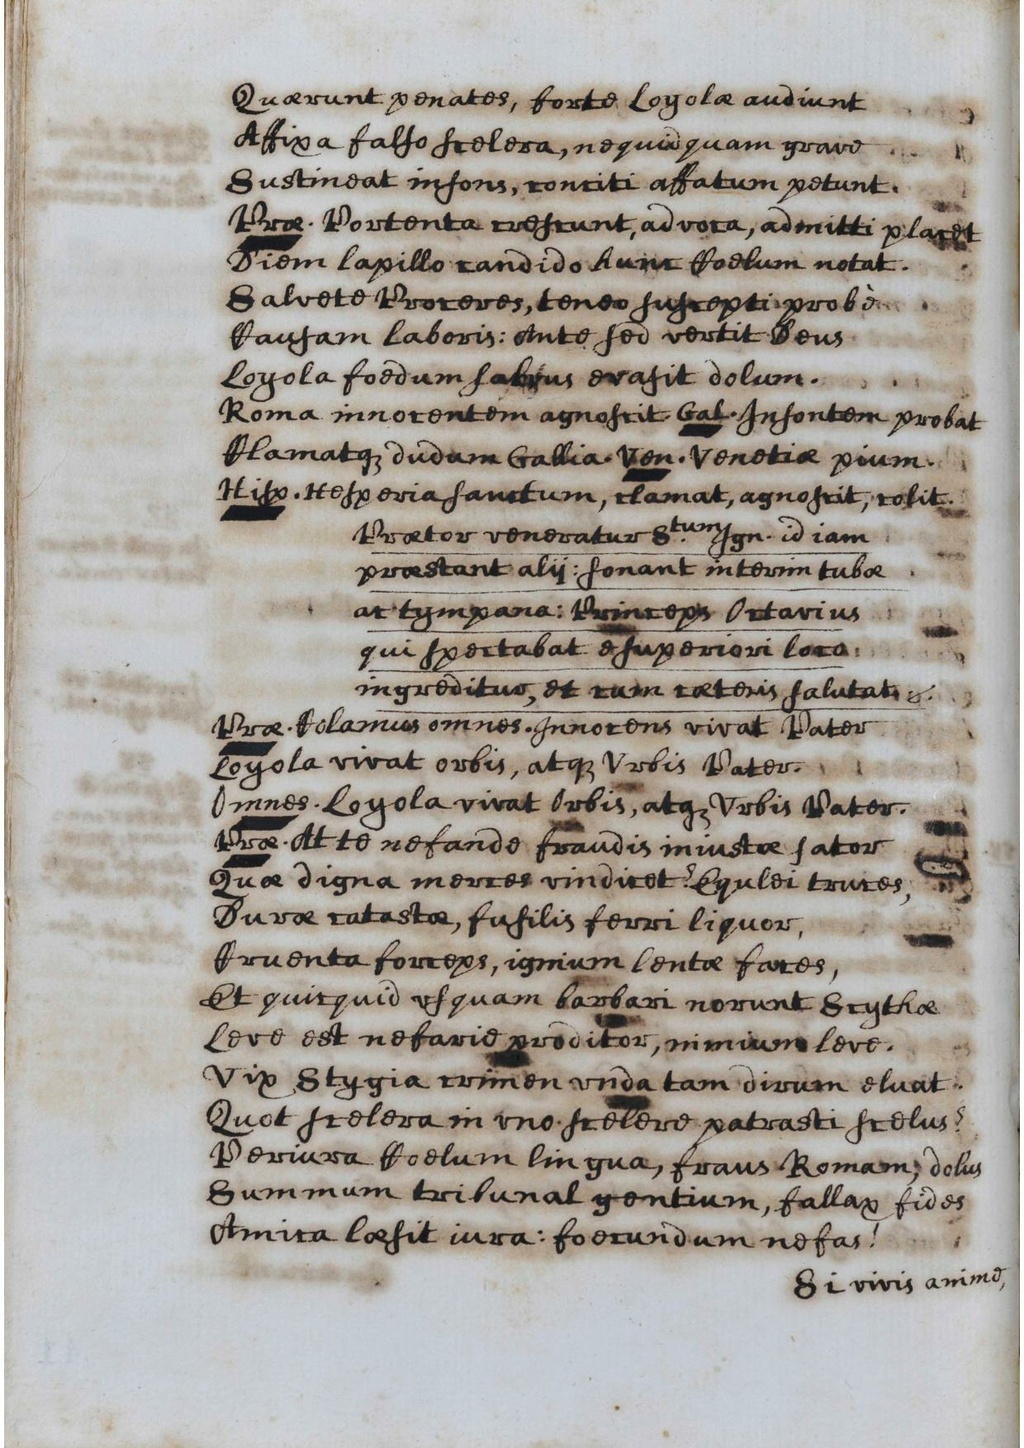 Quærunt penates, forte Loyolæ audiunt
Affixa falso scelera, nequidquam grave
Sustineat insons, conciti affatum petunt.
Præ. Portenta crescunt, advoca, admitti placet
Diem lapillo candido hunc Coelum notat.
Salvete Proceres, teneo suscepti probè
Causam laboris: Ante sed vertit Deus
Loyola foedum salvus evasit dolum.
Roma innocentem agnoscit. Gal. Insontem probat
Clamatq; dudum Gallia. Ven. Venetiæ pium.
Hisp. Hesperia sanctum, clamat, agnoscit, colit.
Prætor veneratur S.tum Ign. id iam
præstant alij: sonant interim tubæ
ac tympana: Princeps Octavius
qui spectabat e superiori loco
ingreditur, et cum cæteris salutat. &.
Præ. Colamus omnes. Innocens vivat Pater
Loyola vivat orbis, atq; Vrbis Pater.
Omnes. Loyola vivat Orbis, atq; Vrbis Pater.
Præ. At te nefande fraudis iniustæ sator
Quæ digna merces vindicet? Equlei truces,
Duræ catastæ, fusilis ferri liquor,
Cruenta forceps, ignium lentæ faces,
Et quicquid vsquam barbari norunt Scythæ
Leve est nefarie proditor, nimium leve.
Vix Stygia crimen vnda tam dirum eluat.
Quot scelera in vno scelere patrasti scelus?
Periura Coelum lingua, fraus Romam, dolus
Summum tribunal gentium, fallax fides
Amica læsit iura: foecundum nefas!
Si vivis anime,